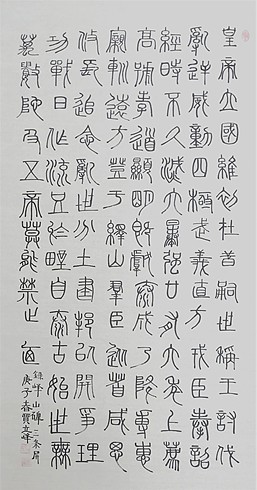 皇帝立國維初在昔嗣世稱王討伐
亂逆威動四極武義直方戎臣奉詔
經時不久滅六暴強廿有六年上薦
高號孝道顯明既獻泰成乃降尃惠
親巡遠方登于繹山群臣從者咸思
攸長追念亂世分土建邦以開爭理
功戰日作流血於野自泰古始世無
萬數陀及五帝莫能禁止迺
錄嶧山碑二条屏
庚子春